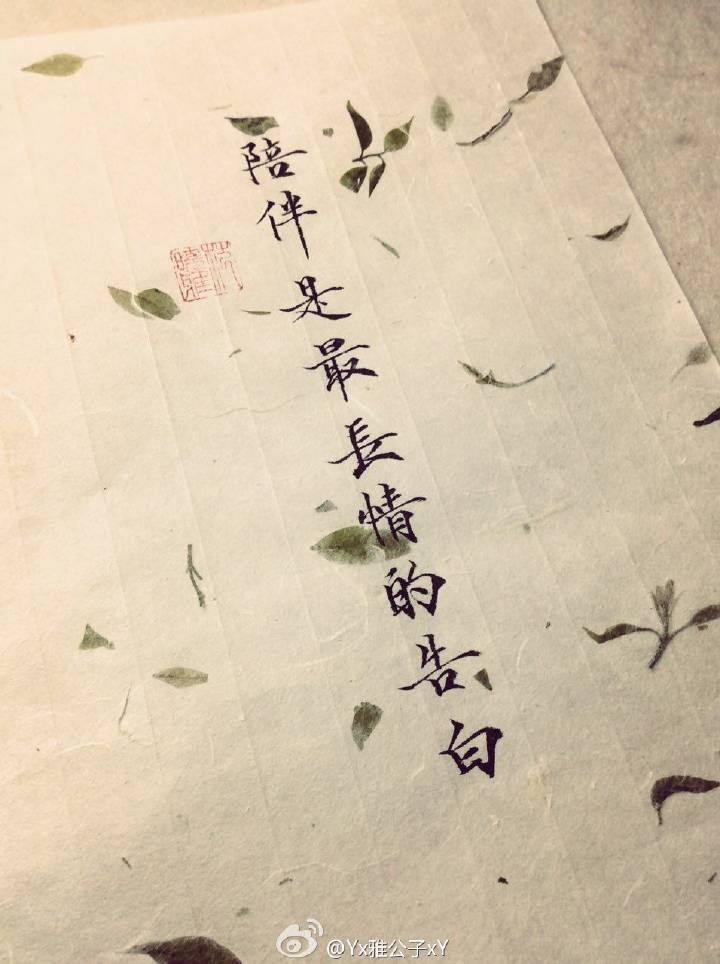 陪伴是最長情的告白
@Yx雅公子xY